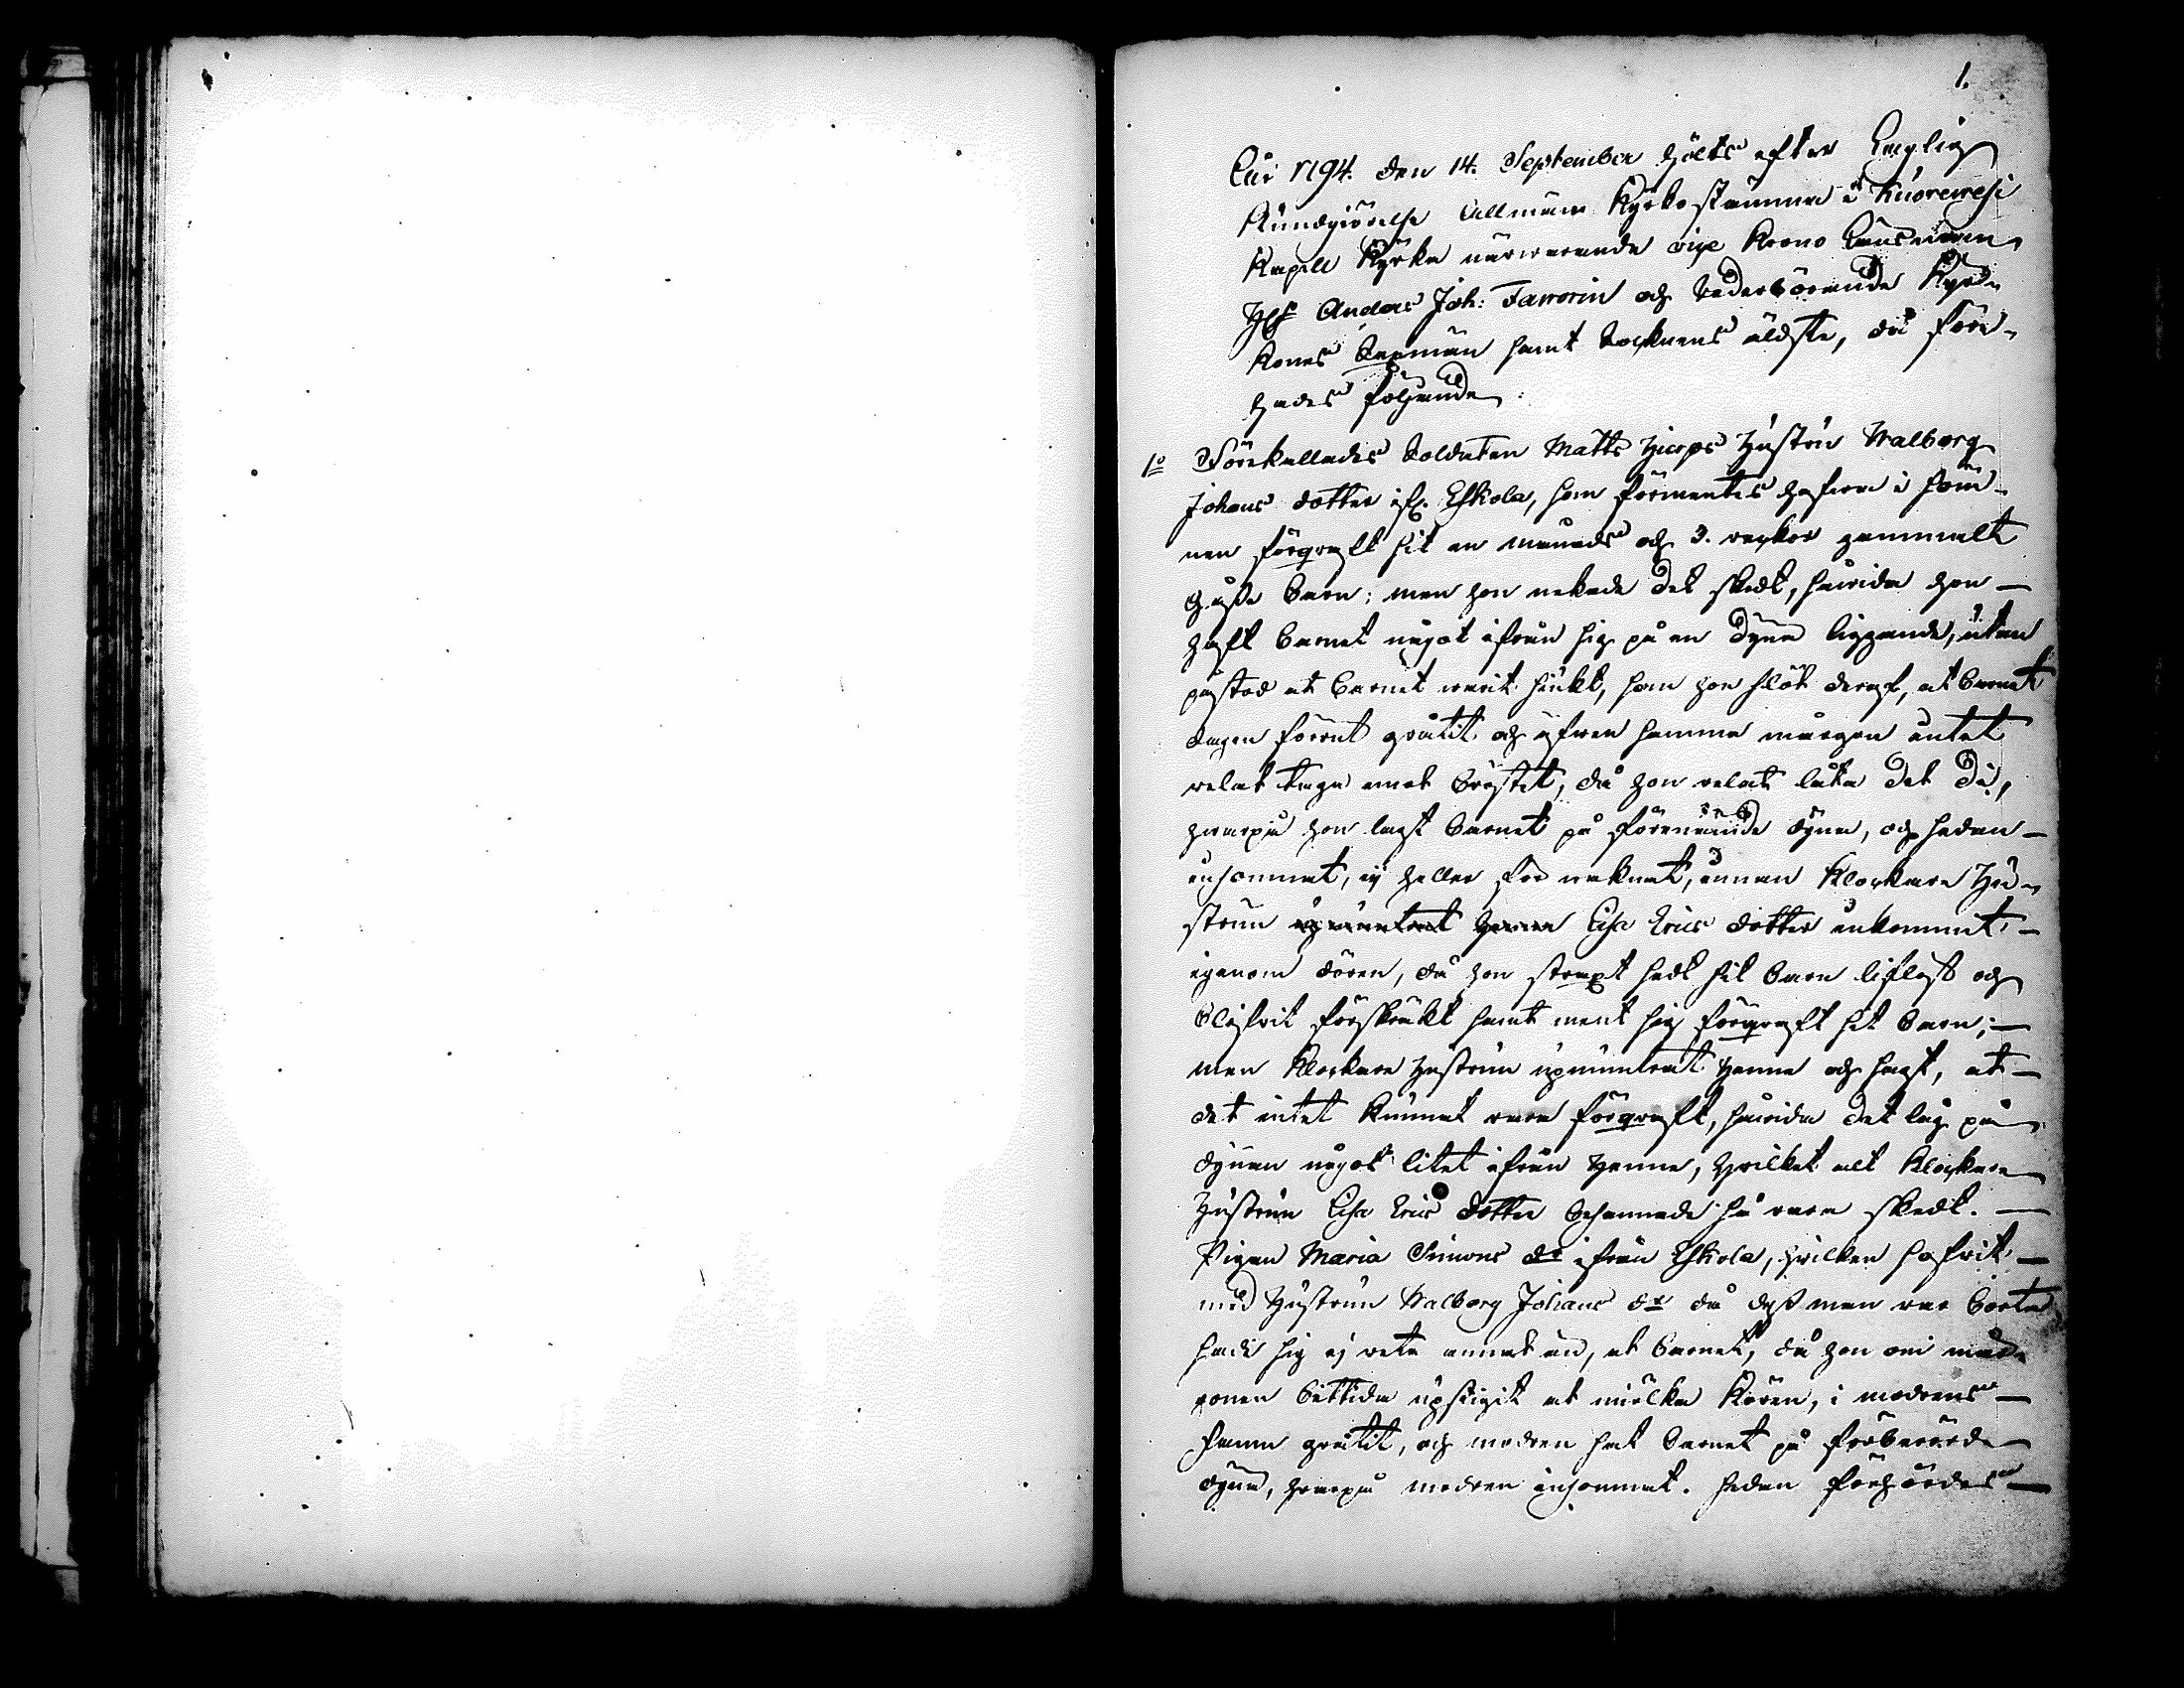 1.
År 1794. den 14. September hölts efter Laglig
Kundgiörelse allmän Kyrkostämma i Kuorewesi
Kapell Kyrka närwarande vice Krono Länsman
H:r Anders Joh: Favorin och Vederbörande Kyr-
kones Sexmän samt Socknens äldste, då före-
hades följande:
1:o Förekallades Soldaten Matts Hjerps Hustru Walborg
Johans dotter if. Eskola, som förmentes hafwa i söm-
nen förqwaft sit en månads och 3. weckor gammalt
Goße Barn; men hon nekade det skedt, såwida hon —
haft Barnet något ifrån sig på en dyna liggande, utan
påstod at Barnet warit siukt, som hon slöt deraf, at Barnet
dagen förrut gråtit och äfwen samma morgon intet
welat taga emot Bröstet, då hon welat låta det di,
hwarpå hon lagt Barnet på förenämde dyna, och sedan —
insomnat, ej heller för waknat, innan Klockare Hu-
strun Lisa Erics dotter inkommit —
igenom dören, då hon strax sedt sit Barn liflöst och
Blifwit förskräkt samt ment sig förqwaft sit Barn; —
men Klockare Hustrun upmuntrat henne och sagt, at —
det intet kunnat wara förqwaft, såwida det låg på
dynan något litet ifrån henne, hwilket alt Klockare
Hustrun Lisa Erics dotter besannade så wara skedt. —
Pigan Maria Simons dr ifrån Eskola, hwilken sofwit —
med Hustrun Walborg Johans dr då deß man war borta
sade sig ej weta annat än, at Barnet, då hon om mor-
gonen bittida upstigit at miölka Koren, i modrens —
famn gråtit, och modren sat Barnet på förberörde
dyna, hwarpå modren insomnat. Sedan förhördes —